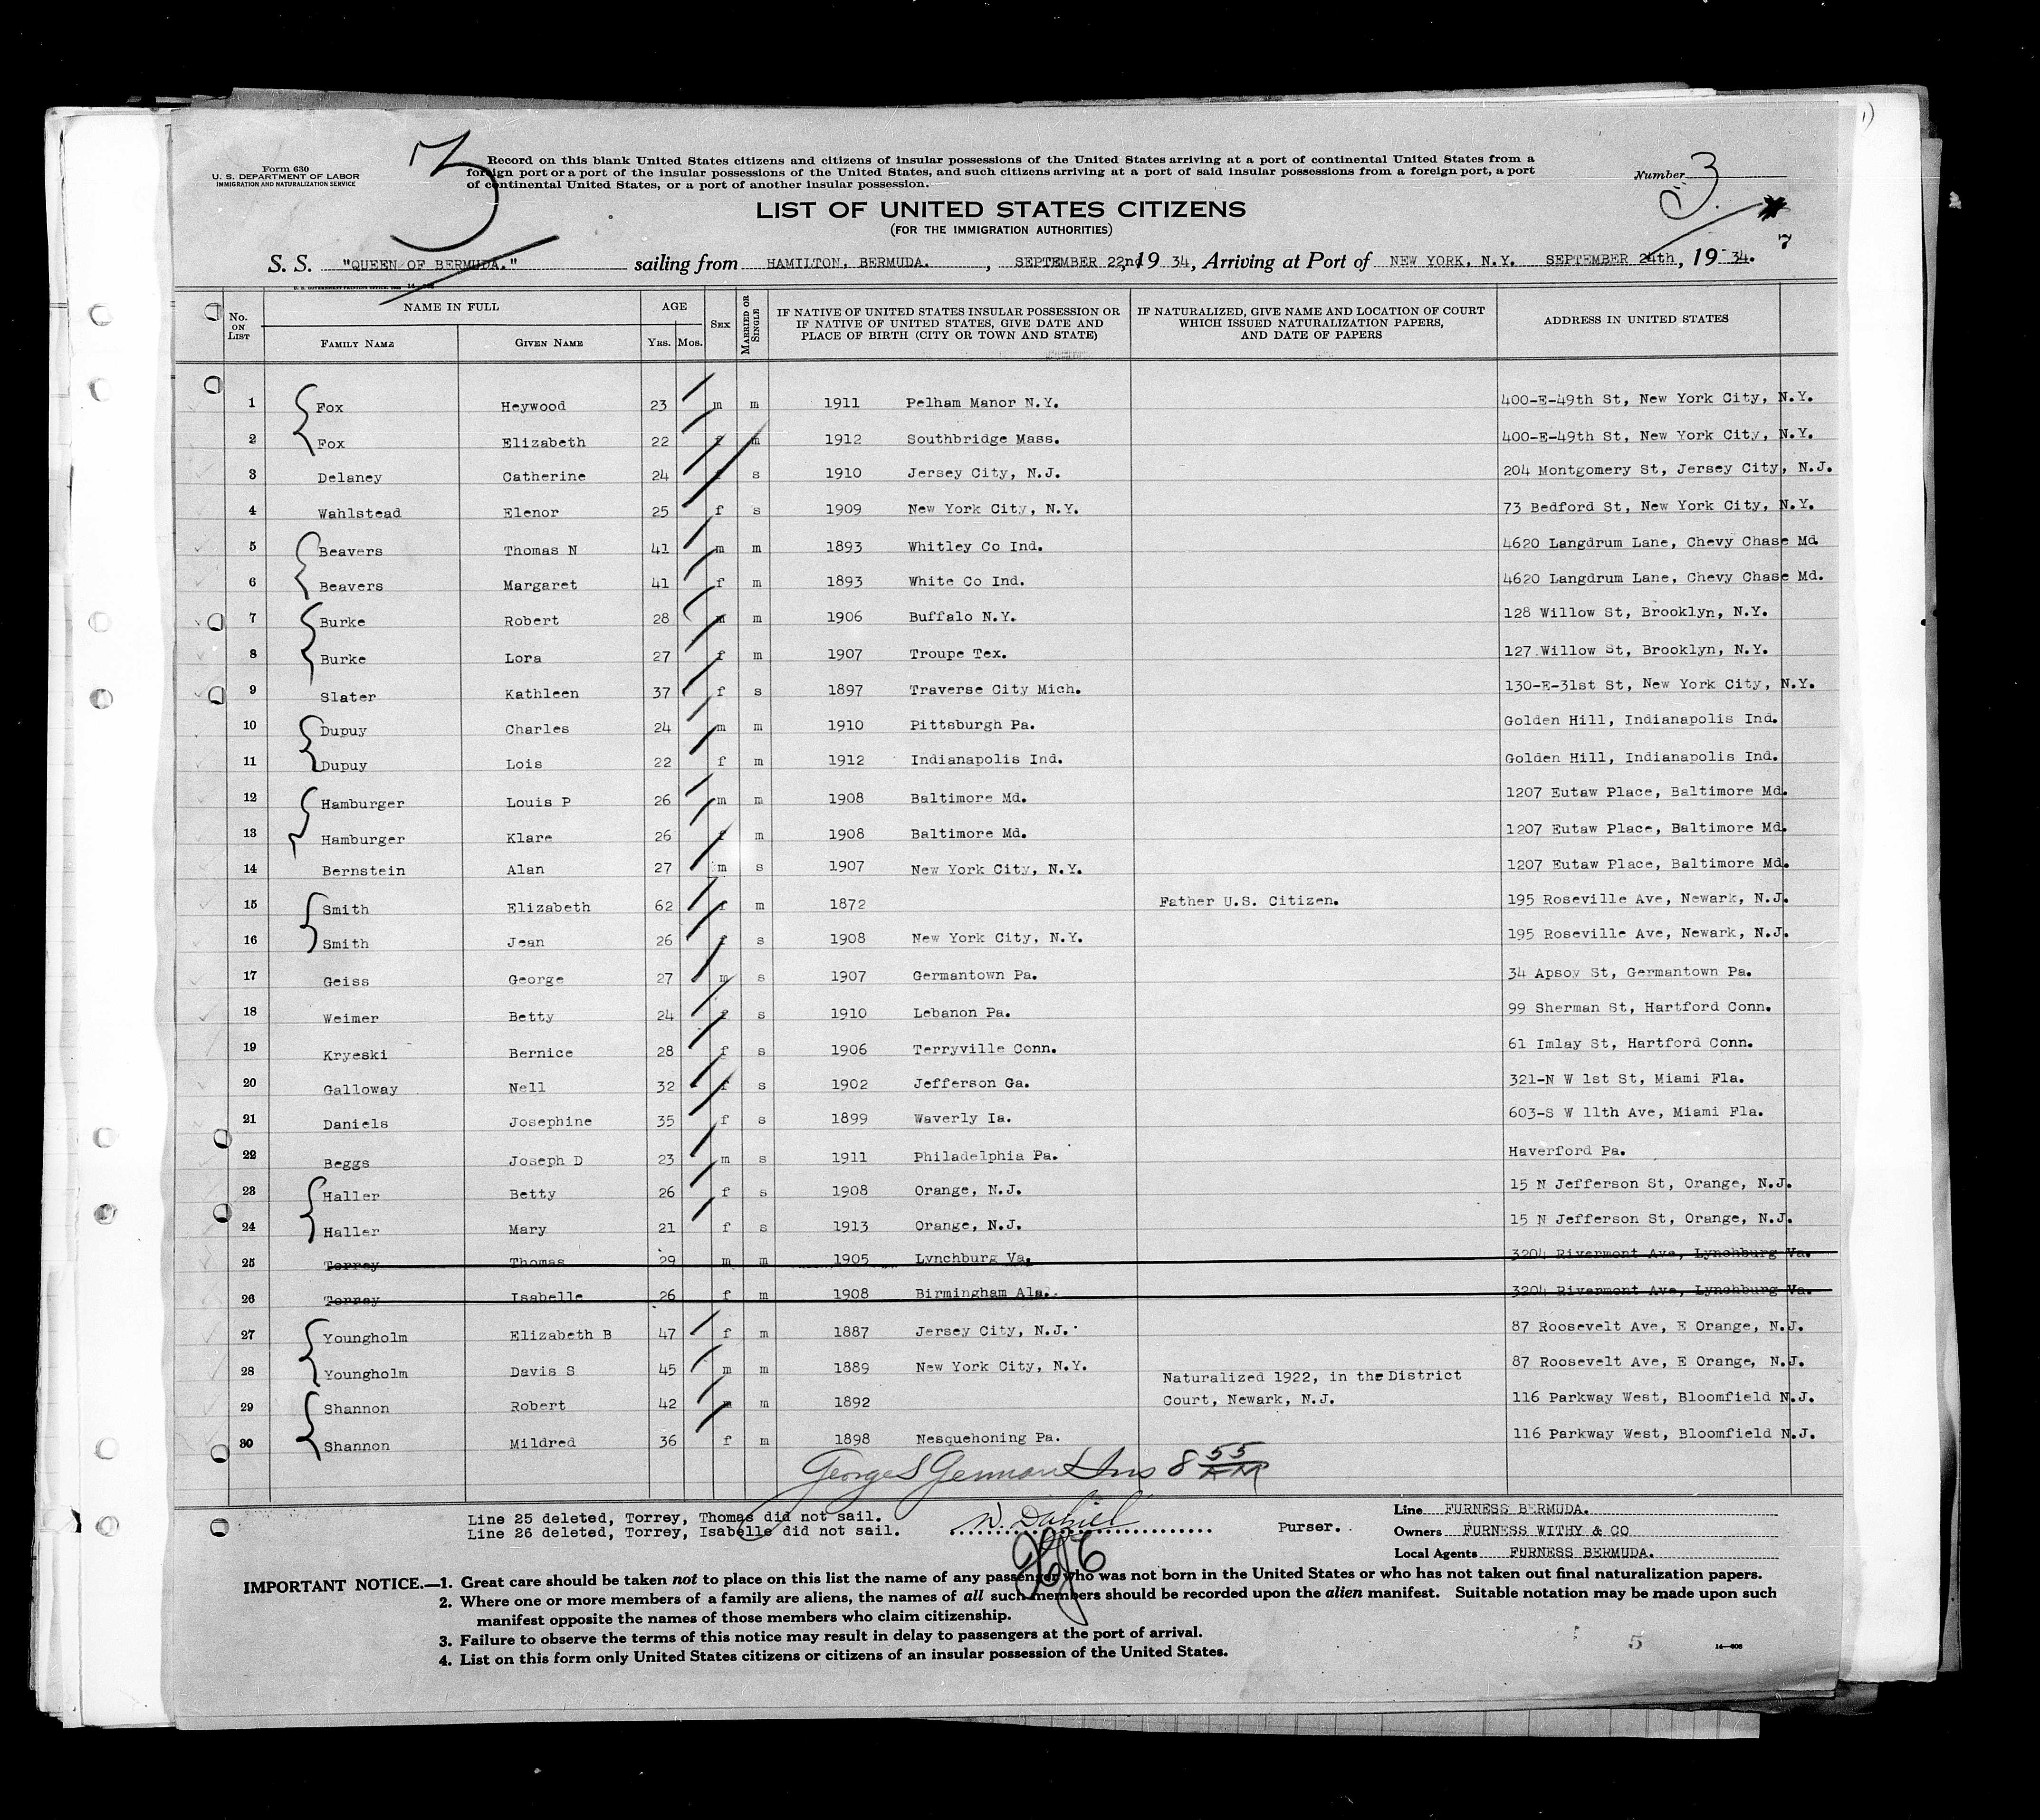 3
Form 630
U. S. DEPARTMENT OF LABOR
IMMIGRATION AND NATURALIZATION SERVICE
Record on this blank United States citizens and citizens of insular possessions of the United States arriving at a port of continental United States from a
foreign port or a port of the insular possessions of the United States, and such citizens arriving at a port of said insular possessions from a foreign port, a port
of continental United States, or a port of another insular possession.
Number 3
LIST OF UNITED STATES CITIZENS
(FOR THE IMMIGRATION AUTHORITIES)
7
S. S. "QUEEN OF BERMUDA." sailing from HAMILTON, BERMUDA. , SEPTEMBER 22nd 19 34, Arriving at Port of NEW YORK, N.Y. SEPTEMBER 24th, 19 34.
No. ON LIST NAME IN FULL FAMILY NAME GIVEN NAME AGE YRS. MOS. SEX MARRIED OR SINGLE IF NATIVE OF UNITED STATES INSULAR POSSESSION OR IF NATIVE OF UNITED STATES, GIVE DATE AND PLACE OF BIRTH (CITY OR TOWN AND STATE) IF NATURALIZED, GIVE NAME AND LOCATION OF COURT WHICH ISSUED NATURALIZATION PAPERS, AND DATE OF PAPERS ADDRESS IN UNITED STATES
1 Fox Heywood 23 m m 1911 Pelham Manor N.Y. 400-E-49th St, New York City, N.Y.
2 Fox Elizabeth 22 f m 1912 Southbridge Mass. 400-E-49th St, New York City, N.Y.
3 Delaney Catherine 24 f s 1910 Jersey City, N.J. 204 Montgomery St, Jersey City, N.J.
4 Wahlstead Elenor 25 f s 1909 New York City, N.Y. 73 Bedford St, New York City, N.Y.
5 Beavers Thomas N 41 m m 1893 Whitley Co Ind. 4620 Langdrum Lane, Chevy Chase Md.
6 Beavers Margaret 41 f m 1893 White Co Ind. 4620 Langdrum Lane, Chevy Chase Md.
7 Burke Robert 28 m m 1906 Buffalo N.Y. 128 Willow St, Brooklyn, N.Y.
8 Burke Lora 27 f m 1907 Troupe Tex. 127 Willow St, Brooklyn, N.Y.
9 Slater Kathleen 37 f s 1897 Traverse City Mich. 130-E-31st St, New York City, N.Y.
10 Dupuy Charles 24 m m 1910 Pittsburgh Pa. Golden Hill, Indianapolis Ind.
11 Dupuy Lois 22 f m 1912 Indianapolis Ind. Golden Hill, Indianapolis Ind.
12 Hamburger Louis P 26 m m 1908 Baltimore Md. 1207 Eutaw Place, Baltimore Md.
13 Hamburger Klare 26 f m 1908 Baltimore Md. 1207 Eutaw Place, Baltimore Md.
14 Bernstein Alan 27 m s 1907 New York City, N.Y. 1207 Eutaw Place, Baltimore Md.
15 Smith Elizabeth 62 f m 1872 Father U.S. Citizen. 195 Roseville Ave, Newark, N.J.
16 Smith Jean 26 f s 1908 New York City, N.Y. 195 Roseville Ave, Newark, N.J.
17 Geiss George 27 m s 1907 Germantown Pa. 34 Apsoy St, Germantown Pa.
18 Weimer Betty 24 f s 1910 Lebanon Pa. 99 Sherman St, Hartford Conn.
19 Kryeski Bernice 28 f s 1906 Terryville Conn. 61 Imlay St, Hartford Conn.
20 Galloway Nell 32 f s 1902 Jefferson Ga. 321-N W 1st St, Miami Fla.
21 Daniels Josephine 35 f s 1899 Waverly Ia. 603-S W 11th Ave, Miami Fla.
22 Beggs Joseph D 23 m s 1911 Philadelphia Pa. Haverford Pa.
23 Haller Betty 26 f s 1908 Orange, N.J. 15 N Jefferson St, Orange, N.J.
24 Haller Mary 21 f s 1913 Orange, N.J. 15 N Jefferson St, Orange, N.J.
25 Torrey Thomas 29 m m 1905 Lynchburg Va. 3204 Rivermont Ave, Lynchburg Va.
26 Torrey Isabelle 26 f m 1908 Birmingham Ala. 3204 Rivermont Ave, Lynchburg Va.
27 Youngholm Elizabeth B 47 f m 1887 Jersey City, N.J. 87 Roosevelt Ave, E Orange, N.J.
28 Youngholm Davis S 45 m m 1889 New York City, N.Y. 87 Roosevelt Ave, E Orange, N.J.
Naturalized 1922, in the District
29 Shannon Robert 42 m m 1892 Court, Newark, N.J. 116 Parkway West, Bloomfield N.J.
30 Shannon Mildred 36 f m 1898 Nesquehoning Pa. 116 Parkway West, Bloomfield N.J.
George S 8 55
Line 25 deleted, Torrey, Thomas did not sail.
Line 26 deleted, Torrey, Isabelle did not sail.
Purser.
Line FURNESS BERMUDA.
Owners FURNESS WITHY & CO
Local Agents FURNESS BERMUDA.
IMPORTANT NOTICE.—1. Great care should be taken not to place on this list the name of any passenger who was not born in the United States or who has not taken out final naturalization papers.
2. Where one or more members of a family are aliens, the names of all such members should be recorded upon the alien manifest. Suitable notation may be made upon such
manifest opposite the names of those members who claim citizenship.
3. Failure to observe the terms of this notice may result in delay to passengers at the port of arrival.
4. List on this form only United States citizens or citizens of an insular possession of the United States.
5
14—606